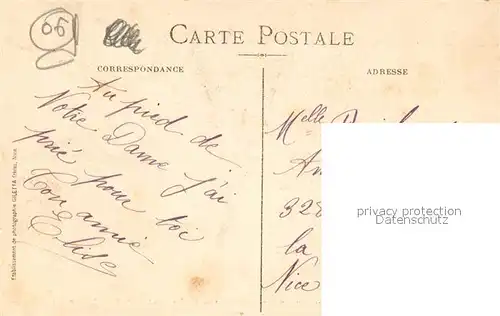 06
CARTE POSTALE
CORRESPONDANCE
ADRESSE
Au pied de
Notre Dame j'ai
prié pour toi
Ton amie
Elise
Melle
An
328
la
Nice
Etablissement de photographie GILETTA frères, Nice
privacy protection
Datenschutz